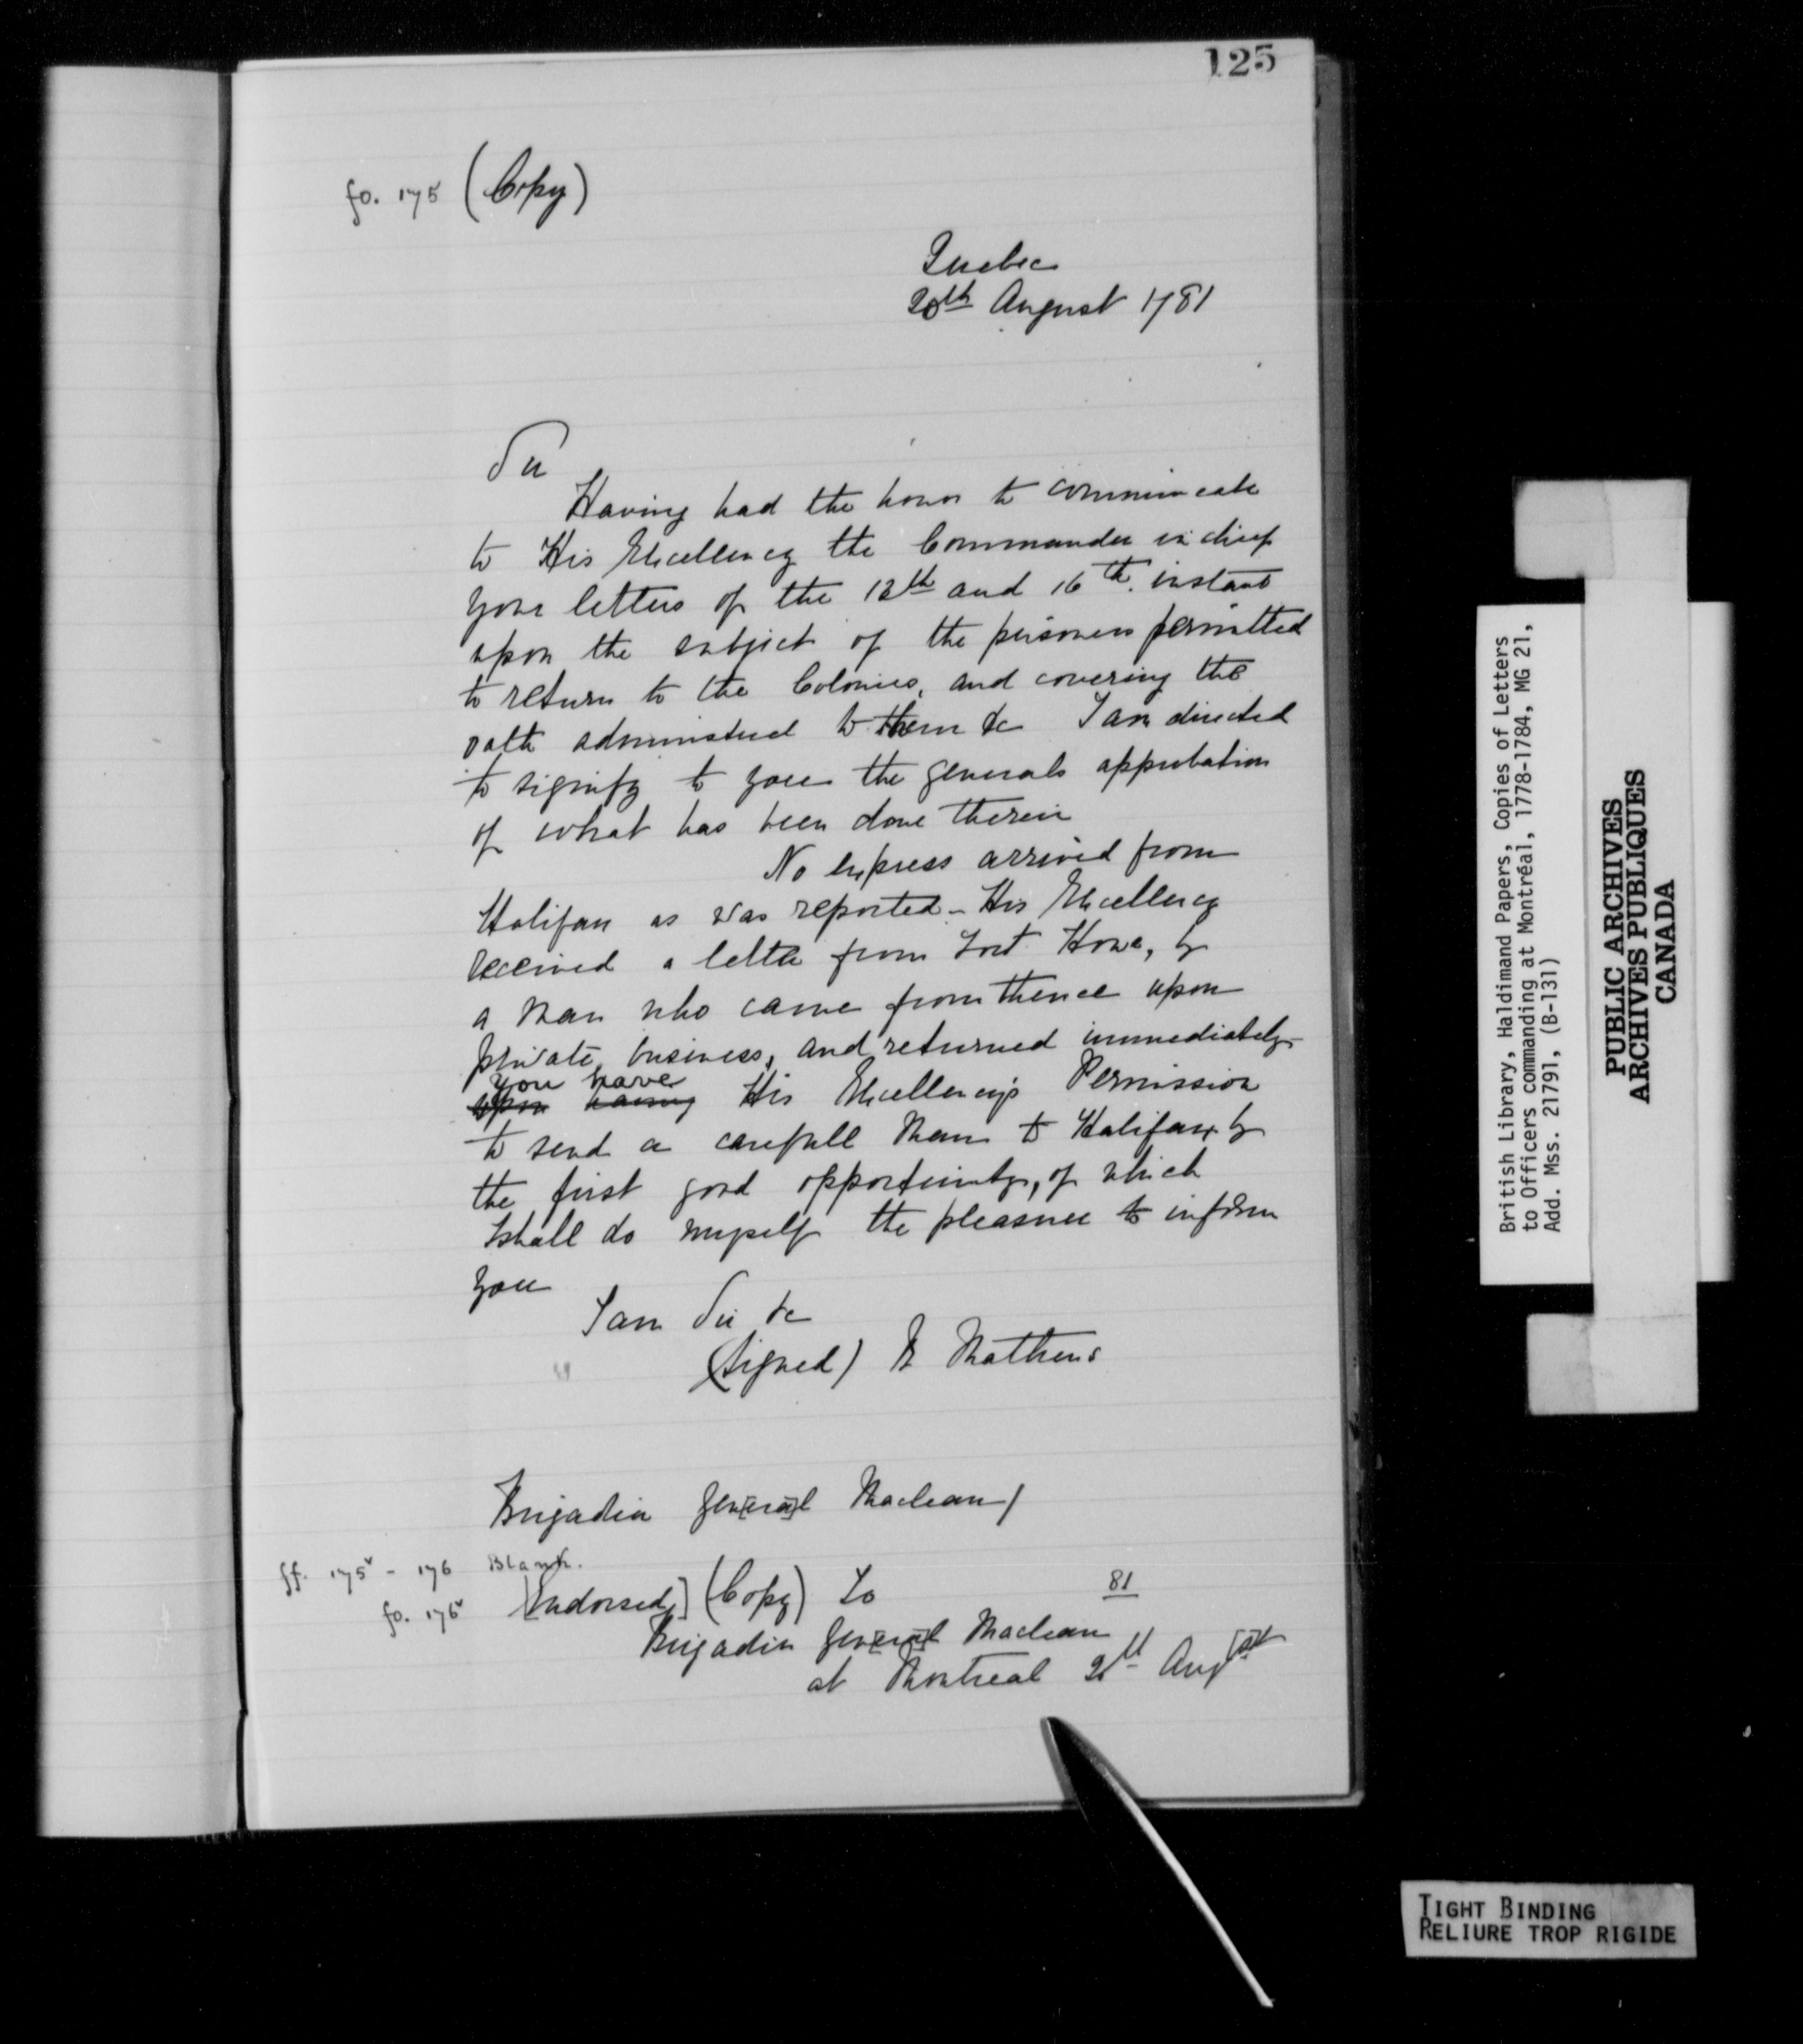 125
fo. 175 (Copy)
Quebec
20th August 1781
Sir
Having had the honor to communicate
to His Excellency the Commander in chief
your letters of the 13th and 16th. instant
upon the subject of the prisoners permitted
to return to the Colonies, and covering the
oath administred to them &c I am directed
to signify to you the generals approbation
of what has been done therein
No express arrived from
Halifax as was reported - His Excellency
received a letter from Fort Howe, by
a man who came from thence upon
private business, and returned immediately
you have
upon having His Excellency's Permission
to send a carefull man to Halifax by
the first good opportunity, of which
I shall do myself the pleasure to inform
you
I am Sir &c
(signed) R Mathews
Brigadier Gen[era]l Maclean/
ff. 175v - 176 Blank.
fo. 176v [Endorsed,] (Copy) To 81
Brigadier Gen[era]l Maclean
at Montreal 20th Aug[u]st
British Library, Haldimand Papers, Copies of Letters
to Officers commanding at Montréal, 1778-1784, MG 21,
Add. Mss. 21791, (B-131)
PUBLIC ARCHIVES
ARCHIVES PUBLIQUES
CANADA
TIGHT BINDING
RELIURE TROP RIGIDE